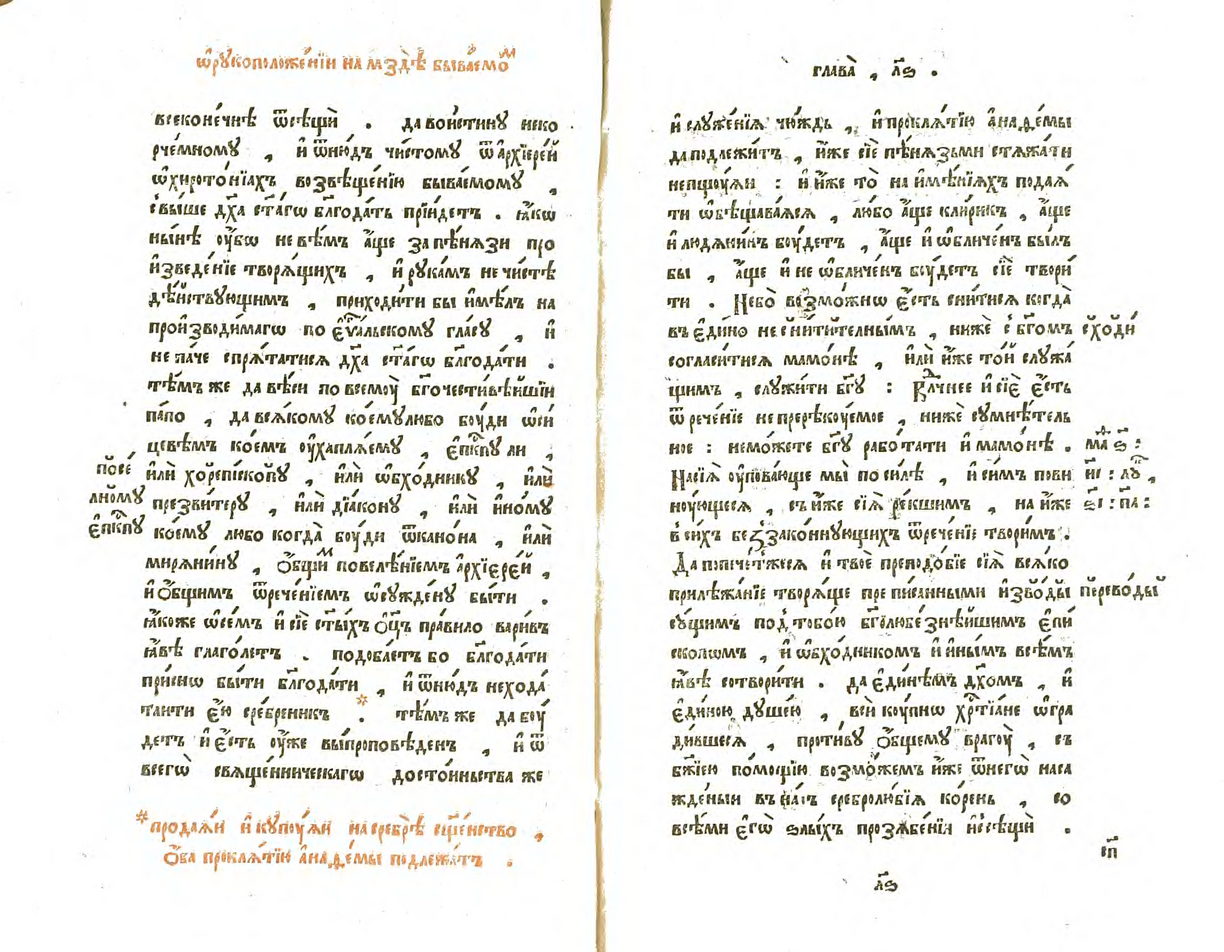 ѿрꙋкоположе́нїи на мздѣ̀ быва́емоⷨ
всеконе́чнѣ ѿсѣщѝ . да вои́стинꙋ неко
рче́мномꙋ , и҆ ѿню́дъ чи́стомꙋ ѿ а҆рхїере́й
ѡ҆хирото́нїахъ возвѣще́нїю быва́емомꙋ ,
свы́ше дх҃а ст҃а́гѡ блг҃ода́ть прїи́детъ . ꙗ҆́кѡ
ны́нѣ ᲂу҆́бѡ невѣ́мъ а҆́ще запѣ́нѧзи про
и҆зведе́нїе творѧ́щихъ , и҆ рꙋка́мъ нечи́стѣ
дѣ́йствꙋющимъ , приходи́ти бы и҆мѣ́лъ на
прои҆зводи́магѡ по є҆ѵⷢ҇а́льскомꙋ гла́сꙋ , и҆
не па́че спрѧ́татисѧ дх҃а ст҃а́гѡ блг҃ода́ти .
тѣ́мъ же да вѣ́си по всемоу̀ бг҃очести́вѣйшїи
па́по , да всѧ́комꙋ кое́мꙋлюбо боу́ди ѡ҆си
цевѣ́мъ кое́мъ ᲂу҆хаплѧ́емꙋ , є҆пⷭ҇кпꙋ ли ,
и҆лѝ хорепи́скопꙋ , и҆лѝ ѡ҆бхо́дникꙋ , и҆лѝ
презви́терꙋ , и҆лѝ дїа́конꙋ , и҆лѝ и҆но́мꙋ
ко́емꙋ любо когда̀ боу́ди ѿкано́на , и҆лѝ
мирѧни́нꙋ , ѻ҆́бщиⷨ повелѣ́нїемъ а҆рхїере́й ,
и҆ ѻ҆́бщимъ ѿрече́нїемъ ѡ҆сꙋжде́нꙋ бы́ти .
ꙗ҆́коже ѡ҆се́мъ и҆ сїѐ ст҃ы́хъ ѻ҆ц҃ъ пра́вило вари́въ
ꙗ҆́вѣ глаго́летъ . подоба́етъ бо блг҃ода́ти
при́снѡ бы́ти блг҃ода́ти , и҆ ѿню́дъ нехода́
таити є҆́ю сре́бреникъ * . тѣ́мъ же да боу́
детъ и҆ є҆́сть ᲂу҆́же выпроповѣ́денъ , и҆ ѿ
всегѡ̀ свѧще́нническагѡ досто́иньства же
пове́
лномꙋ
є҆пⷭ҇кпꙋ
* продаѧ́и и҆ кꙋпоу́ѧи на сребрѣ̀ сщ҃е́нство ,
ѻ҆́ба проклѧ́тїю а҆наѳе́мы подлежа́тъ .
глава̀ , л҃ѕ .
и҆ слꙋже́нїѧ чю́ждь , и҆ проклѧ́тїю а҆наѳе́мы
да подлежи́тъ , и҆́же сїѐ пѣ́нѧзьми стѧжа́ти
непщоу́ѧи : и҆ и҆́же то̀ на и҆мѣ́нїѧхъ подаѧ́
ти ѡ҆бѣщава́ѧсѧ , любо а҆́ще кли́рикъ , а҆́ще
и҆ лю́дѧнинъ боу́детъ , а҆́ще и҆ ѡ҆бличе́нъ бы́лъ
бы , а҆́ще и҆ не ѡ҆бличе́нъ боу́детъ сїѐ твори́
ти . Небо̀ возмо́жнѡ є҆́сть сни́тисѧ когда̀
въ є҆ди́но несни́тителнымъ , нижѐ с бг҃омъ
согласи́тисѧ мамо́нѣ , и҆лѝ и҆́же то́й слꙋжа́
щимъ , слꙋжи́ти бг҃ꙋ : Влⷣчнее и҆ сїѐ є҆́сть
ѿрече́нїе непререко́уемое , нижѐ сꙋмнѣ́тель
ное : немо́жете бг҃ꙋ рабо́тати и҆ мамо́нѣ .
Насїѧ̀ ᲂу҆пова́юще мы̀ по си́лѣ , и҆ си́мъ пови
ноу́ющесѧ , съ и҆́же сїѧ̀ ре́кшимъ , на и҆́же
в си́хъ беззако́ннꙋющихъ ѿрече́нїе твори́мъ .
Да попече́тжесѧ и҆ твоѐ преподо́бїе сїѧ̀ всѧ́ко
прилѣжа́нїе творѧ́ще препи́санными и҆зво́ды
сꙋ́щимъ под тобо́ю бг҃олюбе́знѣйшимъ є҆пи́
скопѡмъ , и҆ ѡ҆бхо́дникомъ и҆ и҆ны́мъ всѣ́мъ
ꙗ҆́вѣ сотвори́ти . да є҆ди́нѣмъ дх҃омъ , и҆
є҆ди́ною дꙋше́ю , вси́ коу́пнѡ хрⷭ҇тїа́не ѡ҆гра
ди́вшесѧ , проти́вꙋ ѻ҆́бщемꙋ врагоу̀ , съ
бж҃їею по́мощїю возмо́жемъ и҆́же ѿнегѡ̀ наса
жде́ныи въ на́съ сребролю́бїѧ ко́рень , со
всѣ́ми є҆гѡ̀ ѕлы́хъ прозѧбе́нїи и҆ссѣщѝ .
сходи́
маⷴ ѕ :
не́рево́ды
сп
л҃ѕ